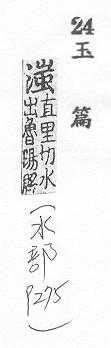 24
玉篇
滍直里切水
出魯陽縣
(水部
P295)